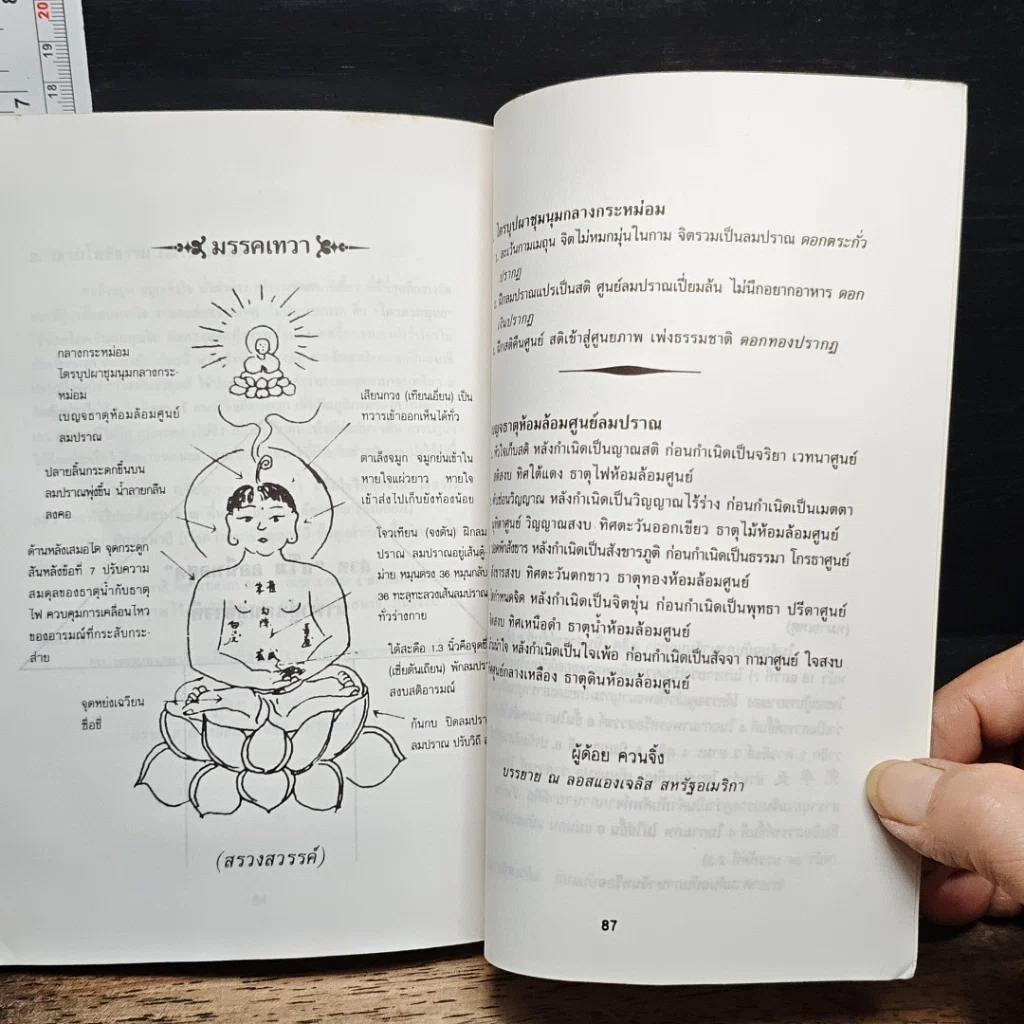 มรรคเทวา
กลางกระหม่อม
ไตรบุปผาชุมนุมกลางกระ-
หม่อม
เบญจธาตุห้อมล้อมศูนย์
ลมปราณ
ปลายลิ้นกระดกขึ้นบน
ลมปราณพุ่งขึ้น น้ำลายกลืน
ลงคอ
ด้านหลังเสมอไต จุดกระดูก
สันหลังข้อที่ 7 ปรับความ
สมดุลของธาตุน้ำกับธาตุ
ไฟ ควบคุมการเคลื่อนไหว
ของอารมณ์ที่กระสับกระ-
ส่าย
จุดหย่งเฉวียน
ชื่อชี่
เสียนกวง (เทียนเอี่ยน) เป็น
ทวารเข้าออกเห็นได้ทั่ว
ตาเล็งจมูก จมูกย่นเข้าใน
หายใจแผ่วยาว หายใจ
เข้าส่งไปเก็บยังท้องน้อย
โจวเทียน (จงตัน) ฝึกลม
ปราณ ลมปราณอยู่เส้นตู๋
ม่าย หมุนตรง 36 หมุนกลับ
36 ทะลุทะลวงเส้นลมปราณ
ทั่วร่างกาย
ใต้สะดือ 1.3 นิ้วคือจุดชี่
(เซี่ยตันเถียน) พักลมปรา
สงบสติอารมณ์
ก้นกบ ปิดลมปรา
ลมปราณ ปรับวิถี
(สรวงสวรรค์)
ไตรบุปผาชุมนุมกลางกระหม่อม
ละเว้นกามเมถุน จิตไม่หมกมุ่นในกาม จิตรวมเป็นลมปราณ ดอกตระกั่ว
ปรากฏ
ฝึกลมปราณแปรเป็นสติ ศูนย์ลมปราณเปี่ยมล้น ไม่นึกอยากอาหาร ดอก
เงินปรากฏ
ฝึกสติคืนศูนย์ สติเข้าสู่ศูนยภาพ เพ่งธรรมชาติ ดอกทองปรากฏ
เบญจธาตุห้อมล้อมศูนย์ลมปราณ
หัวใจเก็บสติ หลังกำเนิดเป็นญาณสติ ก่อนกำเนิดเป็นจริยา เวทนาศูนย์
สติสงบ ทิศใต้แดง ธาตุไฟห้อมล้อมศูนย์
ตับซ่อนวิญญาณ หลังกำเนิดเป็นวิญญาณไร้ร่าง ก่อนกำเนิดเป็นเมตตา
ศูนย์ วิญญาณสงบ ทิศตะวันออกเขียว ธาตุไม้ห้อมล้อมศูนย์
ปอดพักสังขาร หลังกำเนิดเป็นสังขารภูติ ก่อนกำเนิดเป็นธรรมา โกรธาศูนย์
สังขารสงบ ทิศตะวันตกขาว ธาตุทองห้อมล้อมศูนย์
กำหนดจิต หลังกำเนิดเป็นจิตขุ่น ก่อนกำเนิดเป็นพุทธา ปรีดาศูนย์
สงบ ทิศเหนือดำ ธาตุน้ำห้อมล้อมศูนย์
ใจ หลังกำเนิดเป็นใจเพ้อ ก่อนกำเนิดเป็นสัจจา กามาศูนย์ ใจสงบ
ศูนย์กลางเหลือง ธาตุดินห้อมล้อมศูนย์
ผู้ด้อย ควนจิ้ง
บรรยาย ณ ลอสแองเจลิส สหรัฐอเมริกา
87